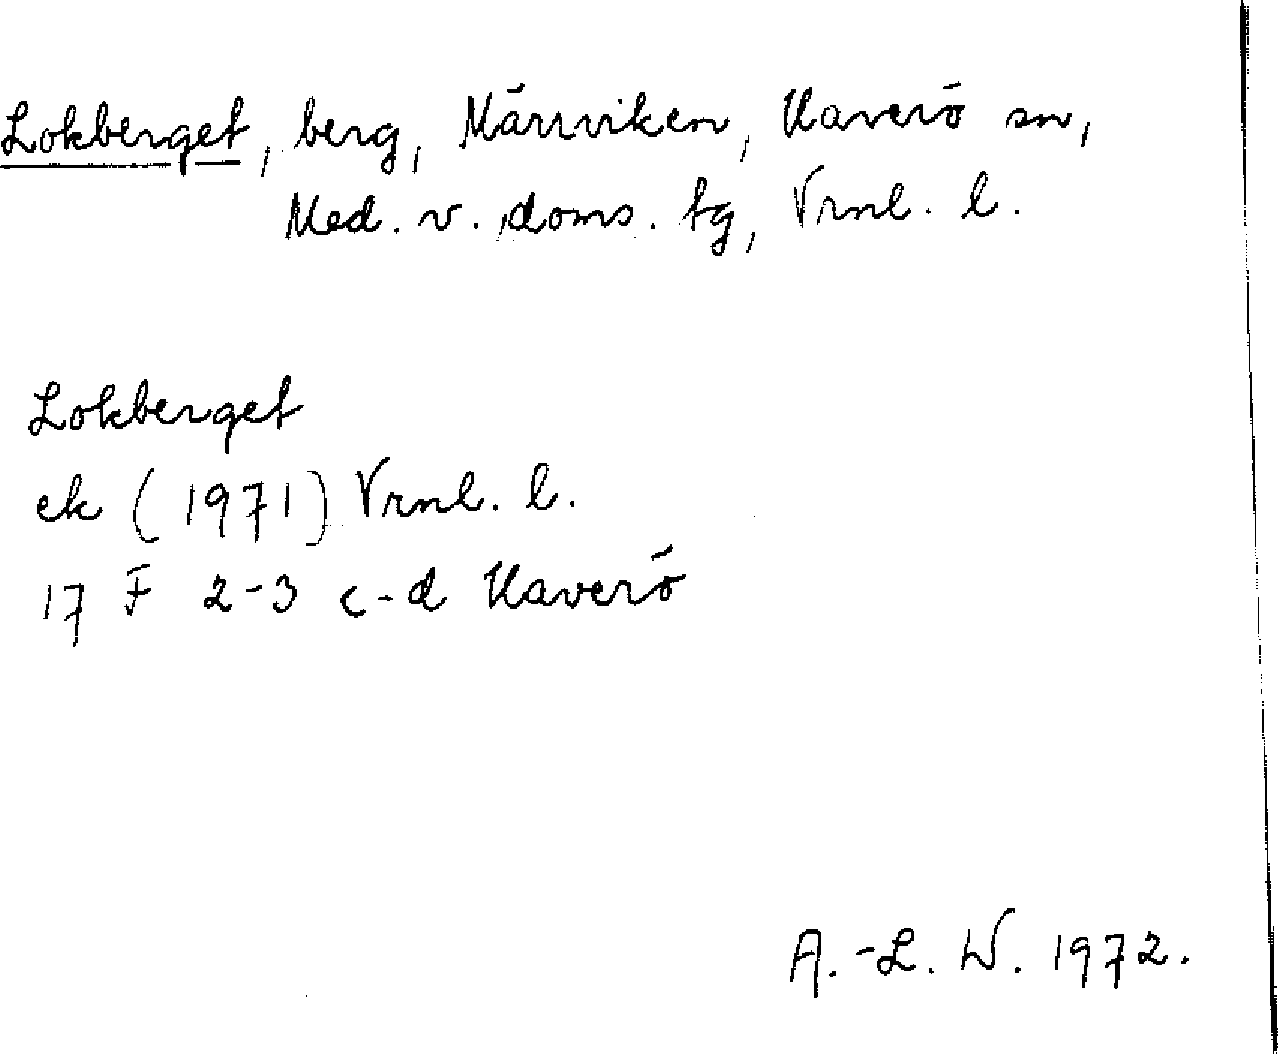 Lokberget, berg, Märrviken, Haverö sn,
Med. v. doms. tg, Vrnl. l.
Lokberget
ek (1971) Vrnl. l.
17 F 2-3 c-d Haverö
A.-L. W. 1972.